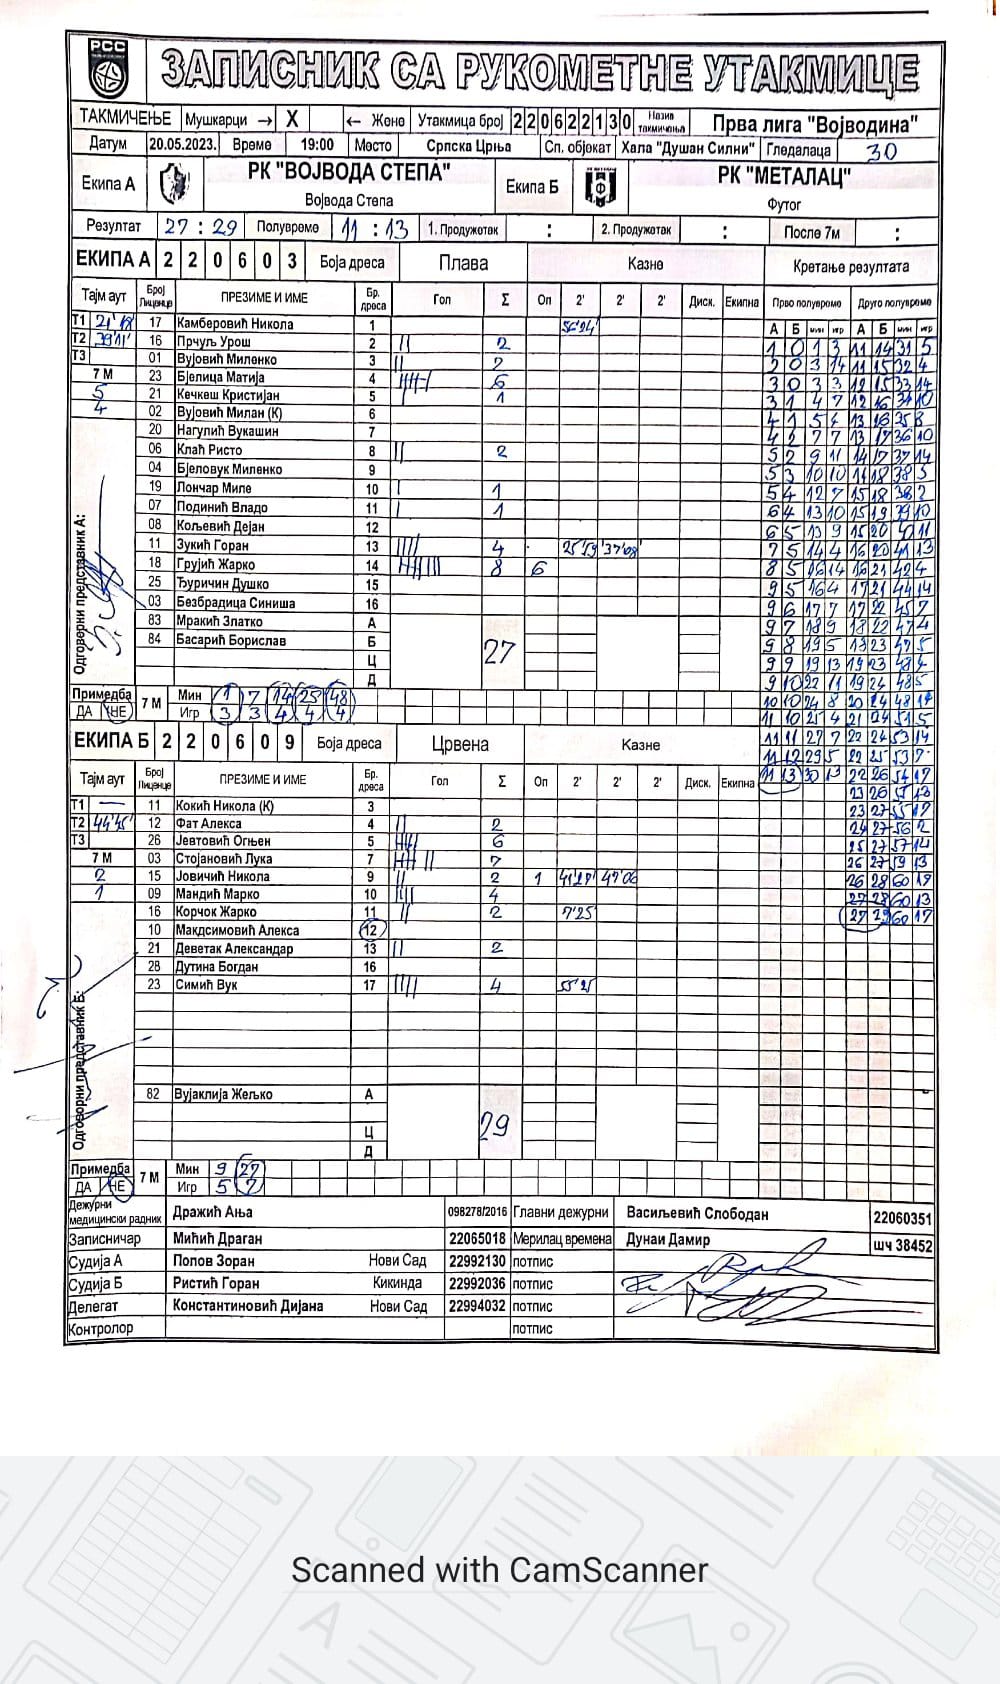 РСС
ЗАПИСНИК СА РУКОМЕТНЕ УТАКМИЦЕ
ТАКМИЧЕЊЕ Мушкарци → X ← Жене Утакмица број 220622130 Назив такмичења Прва лига "Војводина"
Датум 20.05.2023. Време 19:00 Место Српска Црња Сп. објекат Хала "Душан Силни" Гледалаца 30
Екипа А РК "ВОЈВОДА СТЕПА" Војвода Степа Екипа Б РК "МЕТАЛАЦ" Футог
Резултат 27 : 29 Полувреме 11 : 13 1. Продужетак : 2. Продужетак : После 7м :
ЕКИПА А 2 2 0 6 0 3 Боја дреса Плава Казне Кретање резултата
Тајм аут Број Лиценце ПРЕЗИМЕ И ИМЕ Бр. дреса Гол Σ Оп 2' 2' 2' Диск. Екипна Прво полувреме Друго полувреме
А Б мин игр А Б мин игр
Т1 17 Камберовић Никола 1
Т2 39'11' 16 Прчуљ Урош 2 || 2
Т3 01 Вујовић Миленко 3 || 2
7 М 23 Бјелица Матија 4 6
5 21 Кечкеш Кристијан 5 1
4 02 Вујовић Милан (К) 6
20 Нагулић Вукашин 7
06 Клаћ Ристо 8 || 2
04 Бјеловук Миленко 9
19 Лончар Миле 10 | 1
07 Подинић Владо 11 | 1
08 Кољевић Дејан 12
11 Зукић Горан 13 |||| 4 25'59' 37'08'
18 Грујић Жарко 14 8 6
25 Ђуричин Душко 15
03 Безбрадица Синиша 16
83 Мракић Златко А
84 Басарић Борислав Б
27
Ц
Д
Одговорни представник А:
Примедба ДА НЕ 7 М Мин 1 7 14 25 48
Игр 3 3 4 4 4
1 0 1 3 11 14 31 5
2 0 3 14 11 15 32 4
3 0 3 3 12 15 33 14
3 1 4 7 12 16 34 10
4 1 5 4 13 16 35 8
4 2 7 7 13 17 36 10
5 2 9 11 14 17 37 14
5 3 10 10 14 18 38 5
5 4 12 7 15 18 38 2
6 4 13 10 15 19 39 10
6 5 13 9 15 20 40 11
7 5 14 4 16 20 41 13
8 5 16 14 16 21 42 4
9 5 16 4 17 21 44 14
9 6 17 7 17 22 45 7
9 7 18 9 18 22 47 4
9 8 19 5 18 23 47 5
9 9 19 13 19 23 48 4
9 10 22 11 19 24 48 5
10 10 24 8 20 24 48 14
11 10 25 4 21 24 51 5
11 11 27 7 22 24 53 14
11 12 29 5 22 25 53 7
11 13 30 13 22 26 54 17
23 26 55 13
23 27 55 17
24 27 56 2
25 27 57 14
26 27 59 13
26 28 60 17
27 28 60 13
27 29 60 17
ЕКИПА Б 2 2 0 6 0 9 Боја дреса Црвена Казне
Тајм аут Број Лиценце ПРЕЗИМЕ И ИМЕ Бр. дреса Гол Σ Оп 2' 2' 2' Диск. Екипна
Т1 — 11 Кокић Никола (К) 3
Т2 44'45' 12 Фат Алекса 4 || 2
Т3 26 Јевтовић Огњен 5 6
7 М 03 Стојановић Лука 7 7
2 15 Јовичић Никола 9 || 2 1 47'06
1 09 Мандић Марко 10 |||| 4
16 Корчок Жарко 11 || 2 7'25'
10 Макдсимовић Алекса 12
21 Деветак Александар 13 || 2
28 Дутина Богдан 16
23 Симић Вук 17 |||| 4 55'25
82 Вујаклија Жељко А
29
Ц
Д
Одговорни представник Б:
Примедба ДА НЕ 7 М Мин 9 27
Игр 5 7
Дежурни медицински радник Дражић Ања 098278/2016 Главни дежурни Васиљевић Слободан 22060351
Записничар Мићић Драган 22065018 Мерилац времена Дунаи Дамир шч 38452
Судија А Попов Зоран Нови Сад 22992130 потпис
Судија Б Ристић Горан Кикинда 22992036 потпис
Делегат Константиновић Дијана Нови Сад 22994032 потпис
Контролор потпис
Scanned with CamScanner